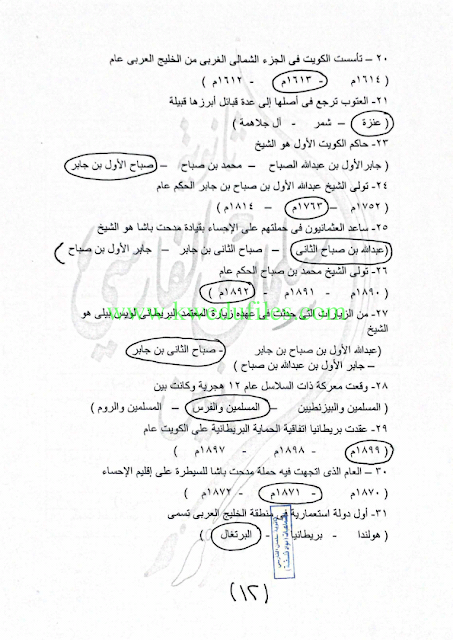 ٢٠ – تأسست الكويت فى الجزء الشمالى الغربى من الخليج العربى عام
( ١٦١٤م - ١٦١٣م - ١٦١٢م )
٢١- العتوب ترجع فى أصلها إلى عدة قبائل أبرزها قبيلة
( عنزة – شمر - آل جلاهمة )
٢٣- حاكم الكويت الأول هو الشيخ
( جابر الأول بن عبدالله الصباح – محمد بن صباح – صباح الأول بن جابر )
٢٤- تولى الشيخ عبدالله الأول بن صباح بن جابر الحكم عام
( ١٧٥٢م – ١٧٦٣م – ١٨١٤م )
٢٥- ساعد العثمانيون فى حملتهم على الإحساء بقيادة مدحت باشا هو الشيخ
(عبدالله بن صباح الثانى – صباح الثانى بن جابر – جابر الأول بن صباح )
٢٦- تولى الشيخ محمد بن صباح الحكم عام
( ١٨٩٠م - ١٨٩١م - ١٨٩٢م )
٢٧- من الزيارات التى حدثت فى عهده زيارة المعتمد البريطانى لويس بيلى هو
الشيخ
(عبدالله الأول بن صباح بن جابر - صباح الثانى بن جابر
– جابر الأول بن عبدالله بن صباح )
٢٨- وقعت معركة ذات السلاسل عام ١٢ هجرية وكانت بين
( المسلمين والبيزنطيين – المسلمين والفرس – المسلمين والروم )
٢٩- عقدت بريطانيا اتفاقية الحماية البريطانية على الكويت عام
( ١٨٩٩م - ١٨٩٨م - ١٨٩٧م )
٣٠ – العام الذى اتجهت فيه حملة مدحت باشا للسيطرة على إقليم الإحساء
( ١٨٧٠م - ١٨٧١م - ١٨٧٢م )
٣١- أول دولة استعمارية فى منطقة الخليج العربى تسمى
( هولندا - بريطانيا - البرتغال )
(١٢)